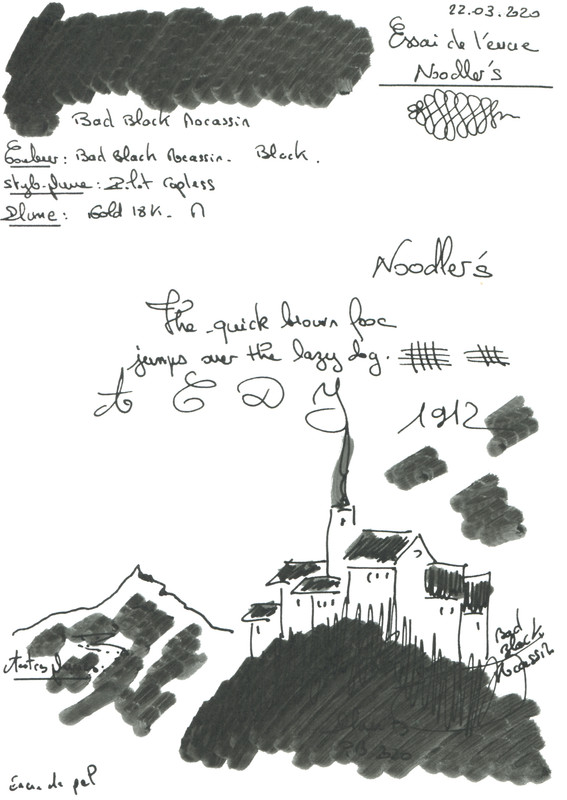 22.03.2020
Essai de l'encre
Noodler's
Bad Black Mocassin
Couleur: Bad Black Mocassin. Black.
Stylo-plume: Pilot Capless
Plume: Gold 18K. M
Noodler's
The quick brown fox
jumps over the lazy dog.
A E D Y
1912
Bad
Black
Mocassin
Autres plumes: